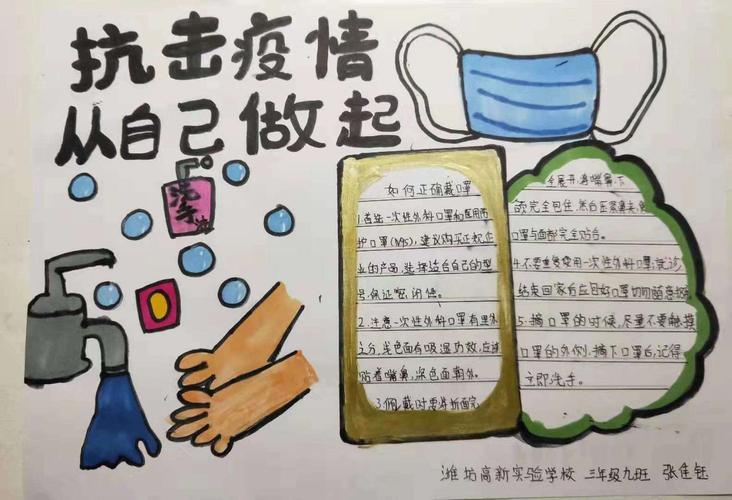 抗击疫情
从自己做起
洗手液
如何正确戴口罩
1.普通一次性外科口罩和医用防
护口罩(N95),建议购买正规企
业的产品,选择适合自己的型
号,保证密闭性。
2.注意一次性外科口罩有里外
之分,浅色面有吸湿功效,应该
贴着嘴鼻,深色面朝外。
3.佩戴时要将折面完
全展开,将嘴鼻、下
颌完全包住,然后压紧鼻夹,使
口罩与面部完全贴合。
4.不要重复使用一次性外科口罩,就诊
结束回家后应用好口罩切勿随意
5.摘口罩的时候,尽量不要触摸
口罩的外侧,摘下口罩后,记得
立即洗手。
潍坊高新实验学校 三年级九班 张佳钰